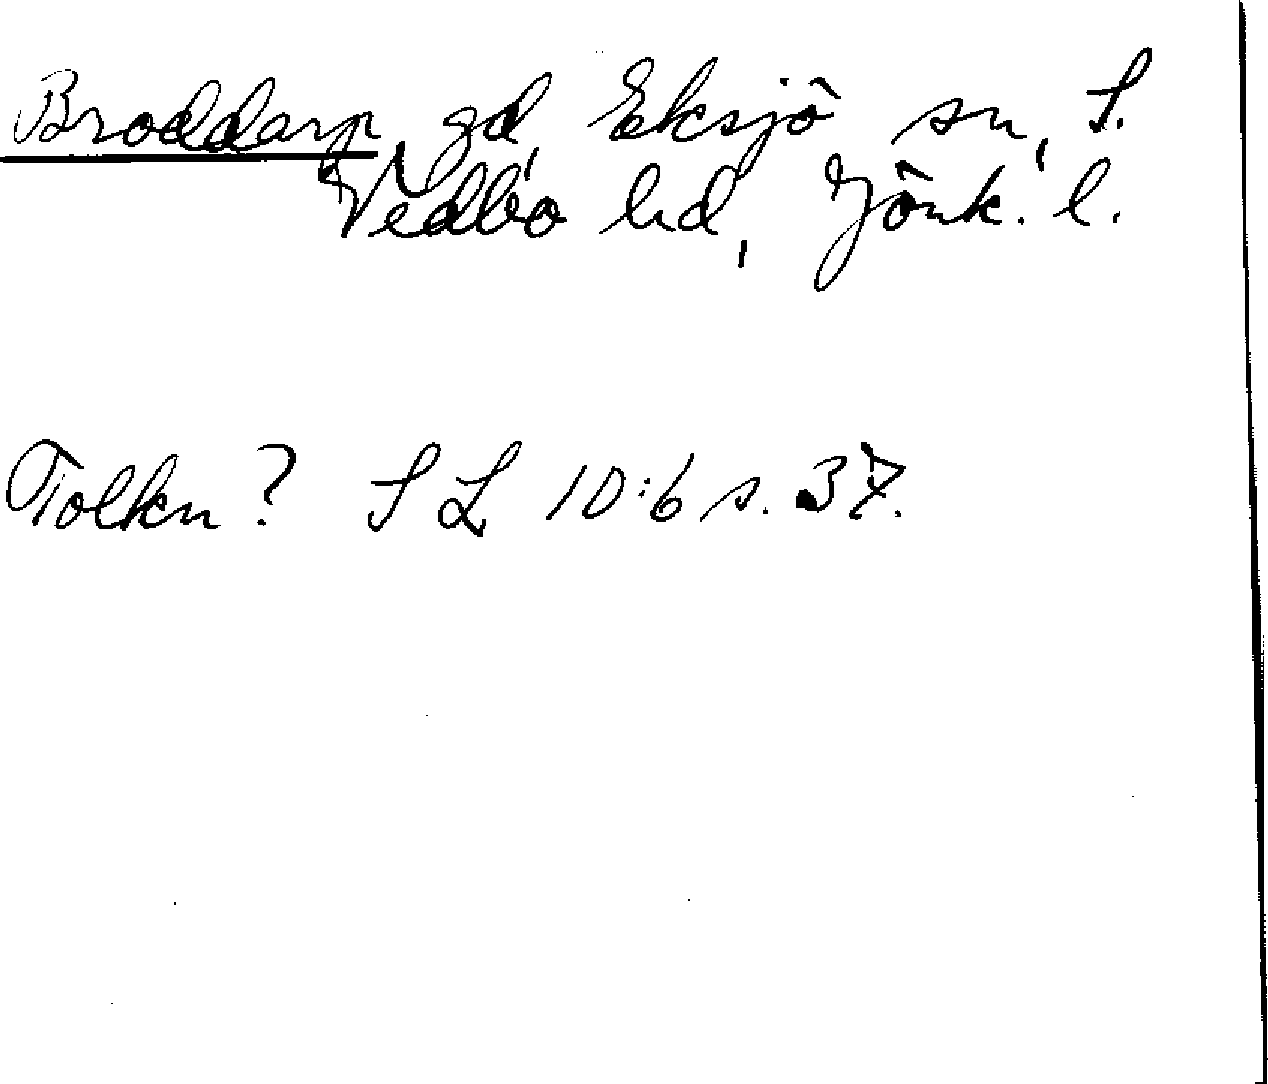 Broddarp, gd, Eksjö sn, S.
Vedbo hd, Jönk. l.
Tolkn? SL 10:6 s. 37.